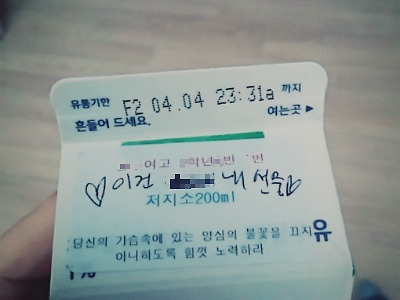 유통기한 F2 04.04 23:31a 까지
흔들어 드세요. 여는곳▶
여고 학년 반 번
♡이건 내 선물♡
저지소200ml
당신의 가슴속에 있는 양심의 불꽃을 끄지
아니하도록 힘껏 노력하라
유
1%